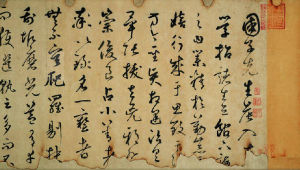 國子先生晨入
學招諸生立館下誨
之曰業精於勤荒
嬉行成于思毀
方今聖賢相逢治具
畢張拔去兇邪登
崇俊良占小善者
率以錄名一藝者
無不庸爬羅剔抉
刮垢磨光蓋有幸
而獲選孰云多而不